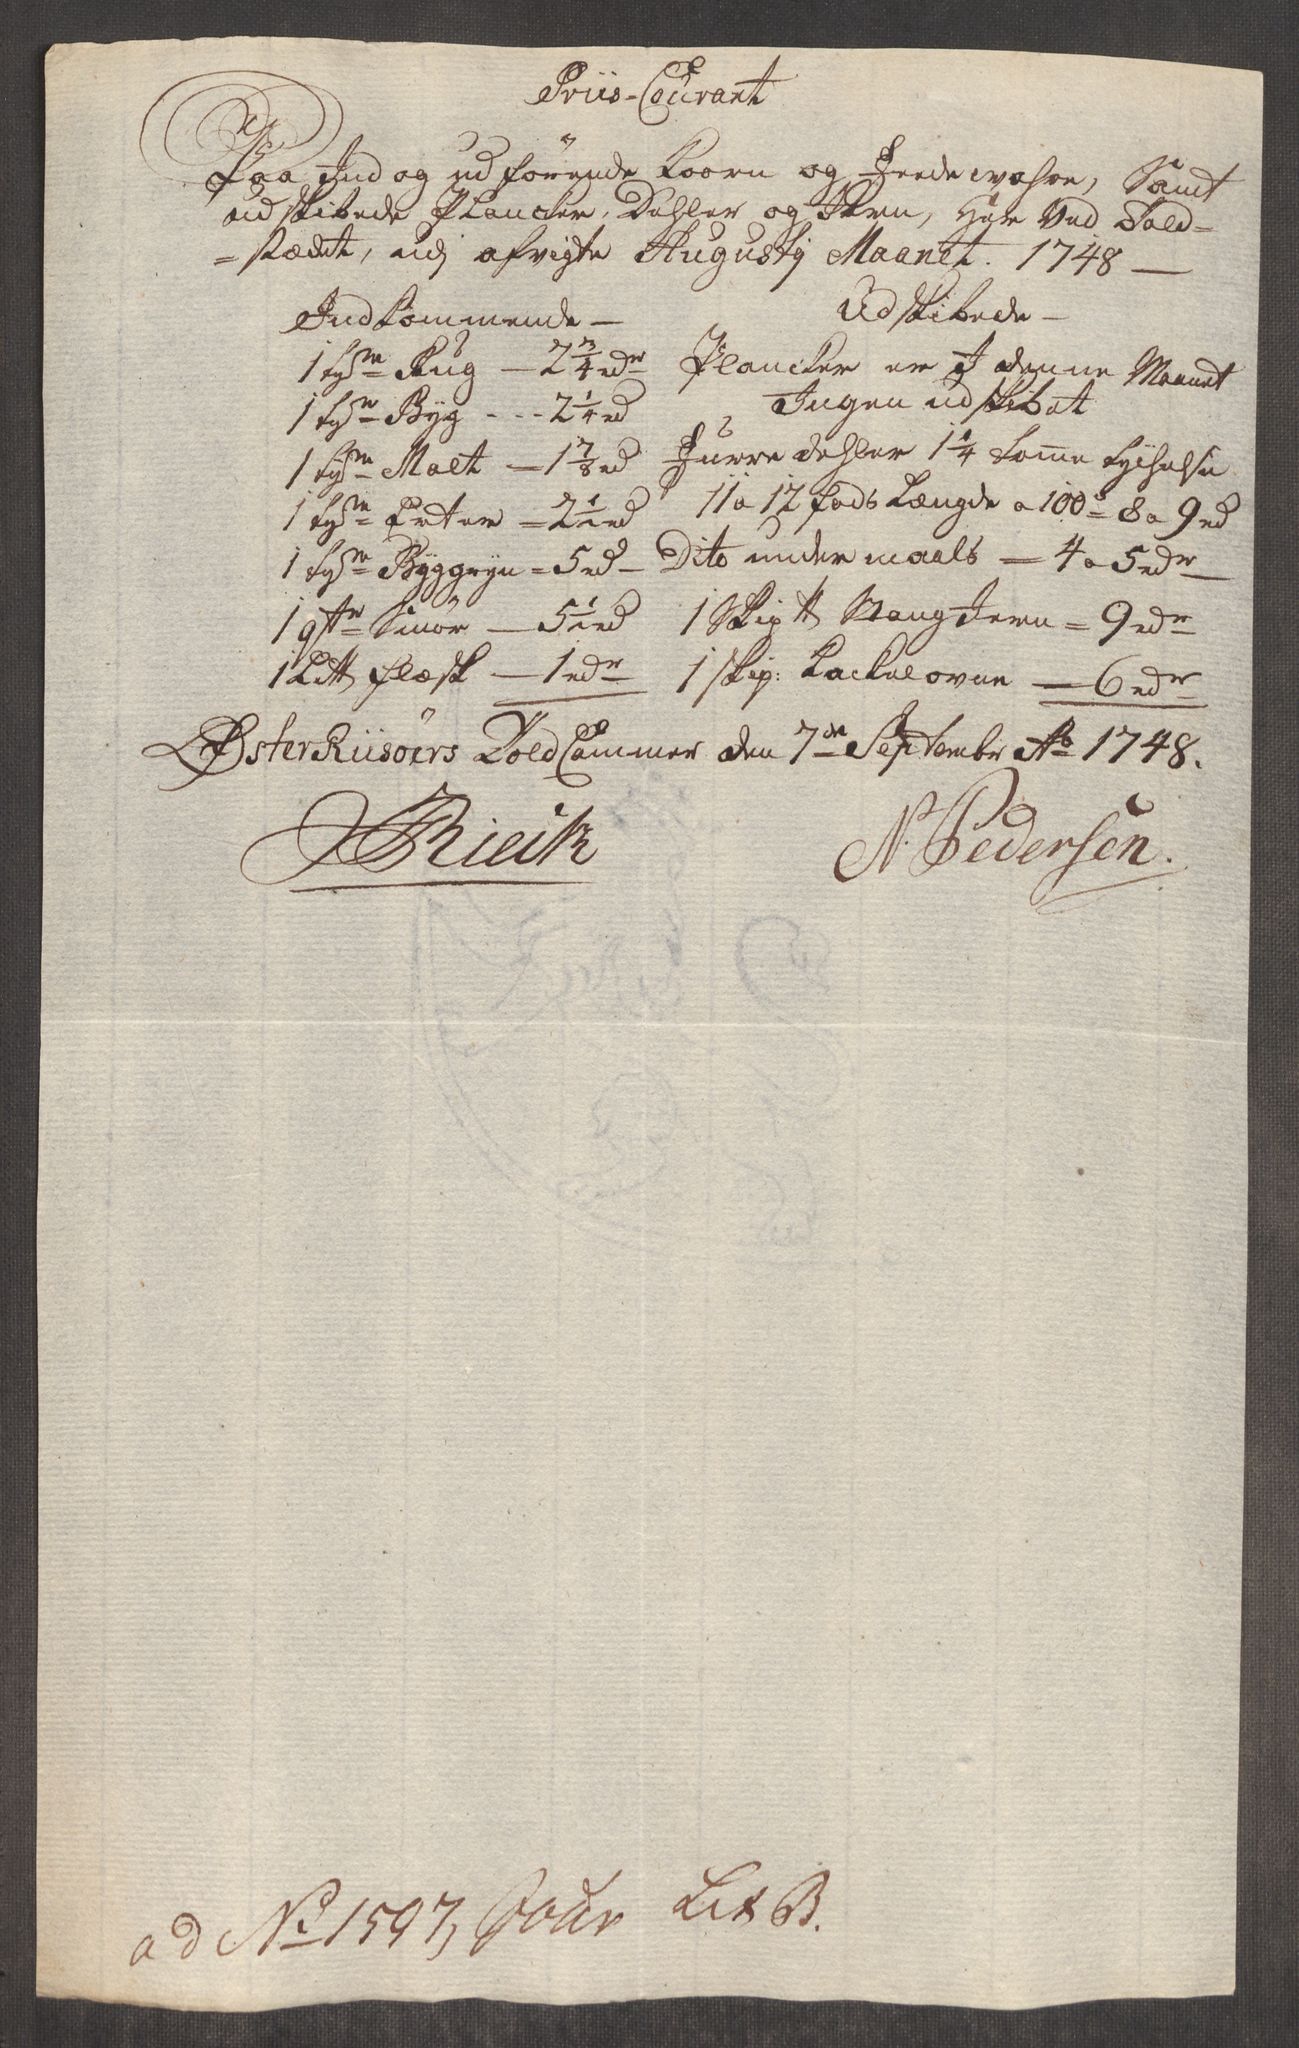 Priis-Courant
Paa Ind og udförende Koorn og Feede wahre, Samt
udskibede Plancker, Dehler og Jern, her ved Told-
=stædet, udj afvigte Augustij Maanet. 1748 —
Indkommende —
1 tø:de Rug — 2 3/4 rdr
1 tø:de Byg - - - 2 1/4 rd
1 tø:de Malt — 1 7/8 rd
1 tø:de Erter = 2 1/2 rd
1 tø:de Byggryn = 5 rd —
1 qtr Smör — 5 1/2 rd
1 Lit℔ flæsk — 1 rdr
Udskibede —
Plancker er I denne Maanet
Ingen udskibet
Furre dehler 1 1/4 tomme tychelse
11 a 12 fods Længde a 100de = 8 a 9 rd
Dito under maals — 4 a 5 rdr —
1 Skip℔ Stang Jern = 9 rdr
1 skip: Kackelovne — 6 rdr
ØsterRiisöers Told Cammer den 7de Septembr Ao 1748.
Rieik
N. Pedersen.
ad No 1597, Jour Lit B.